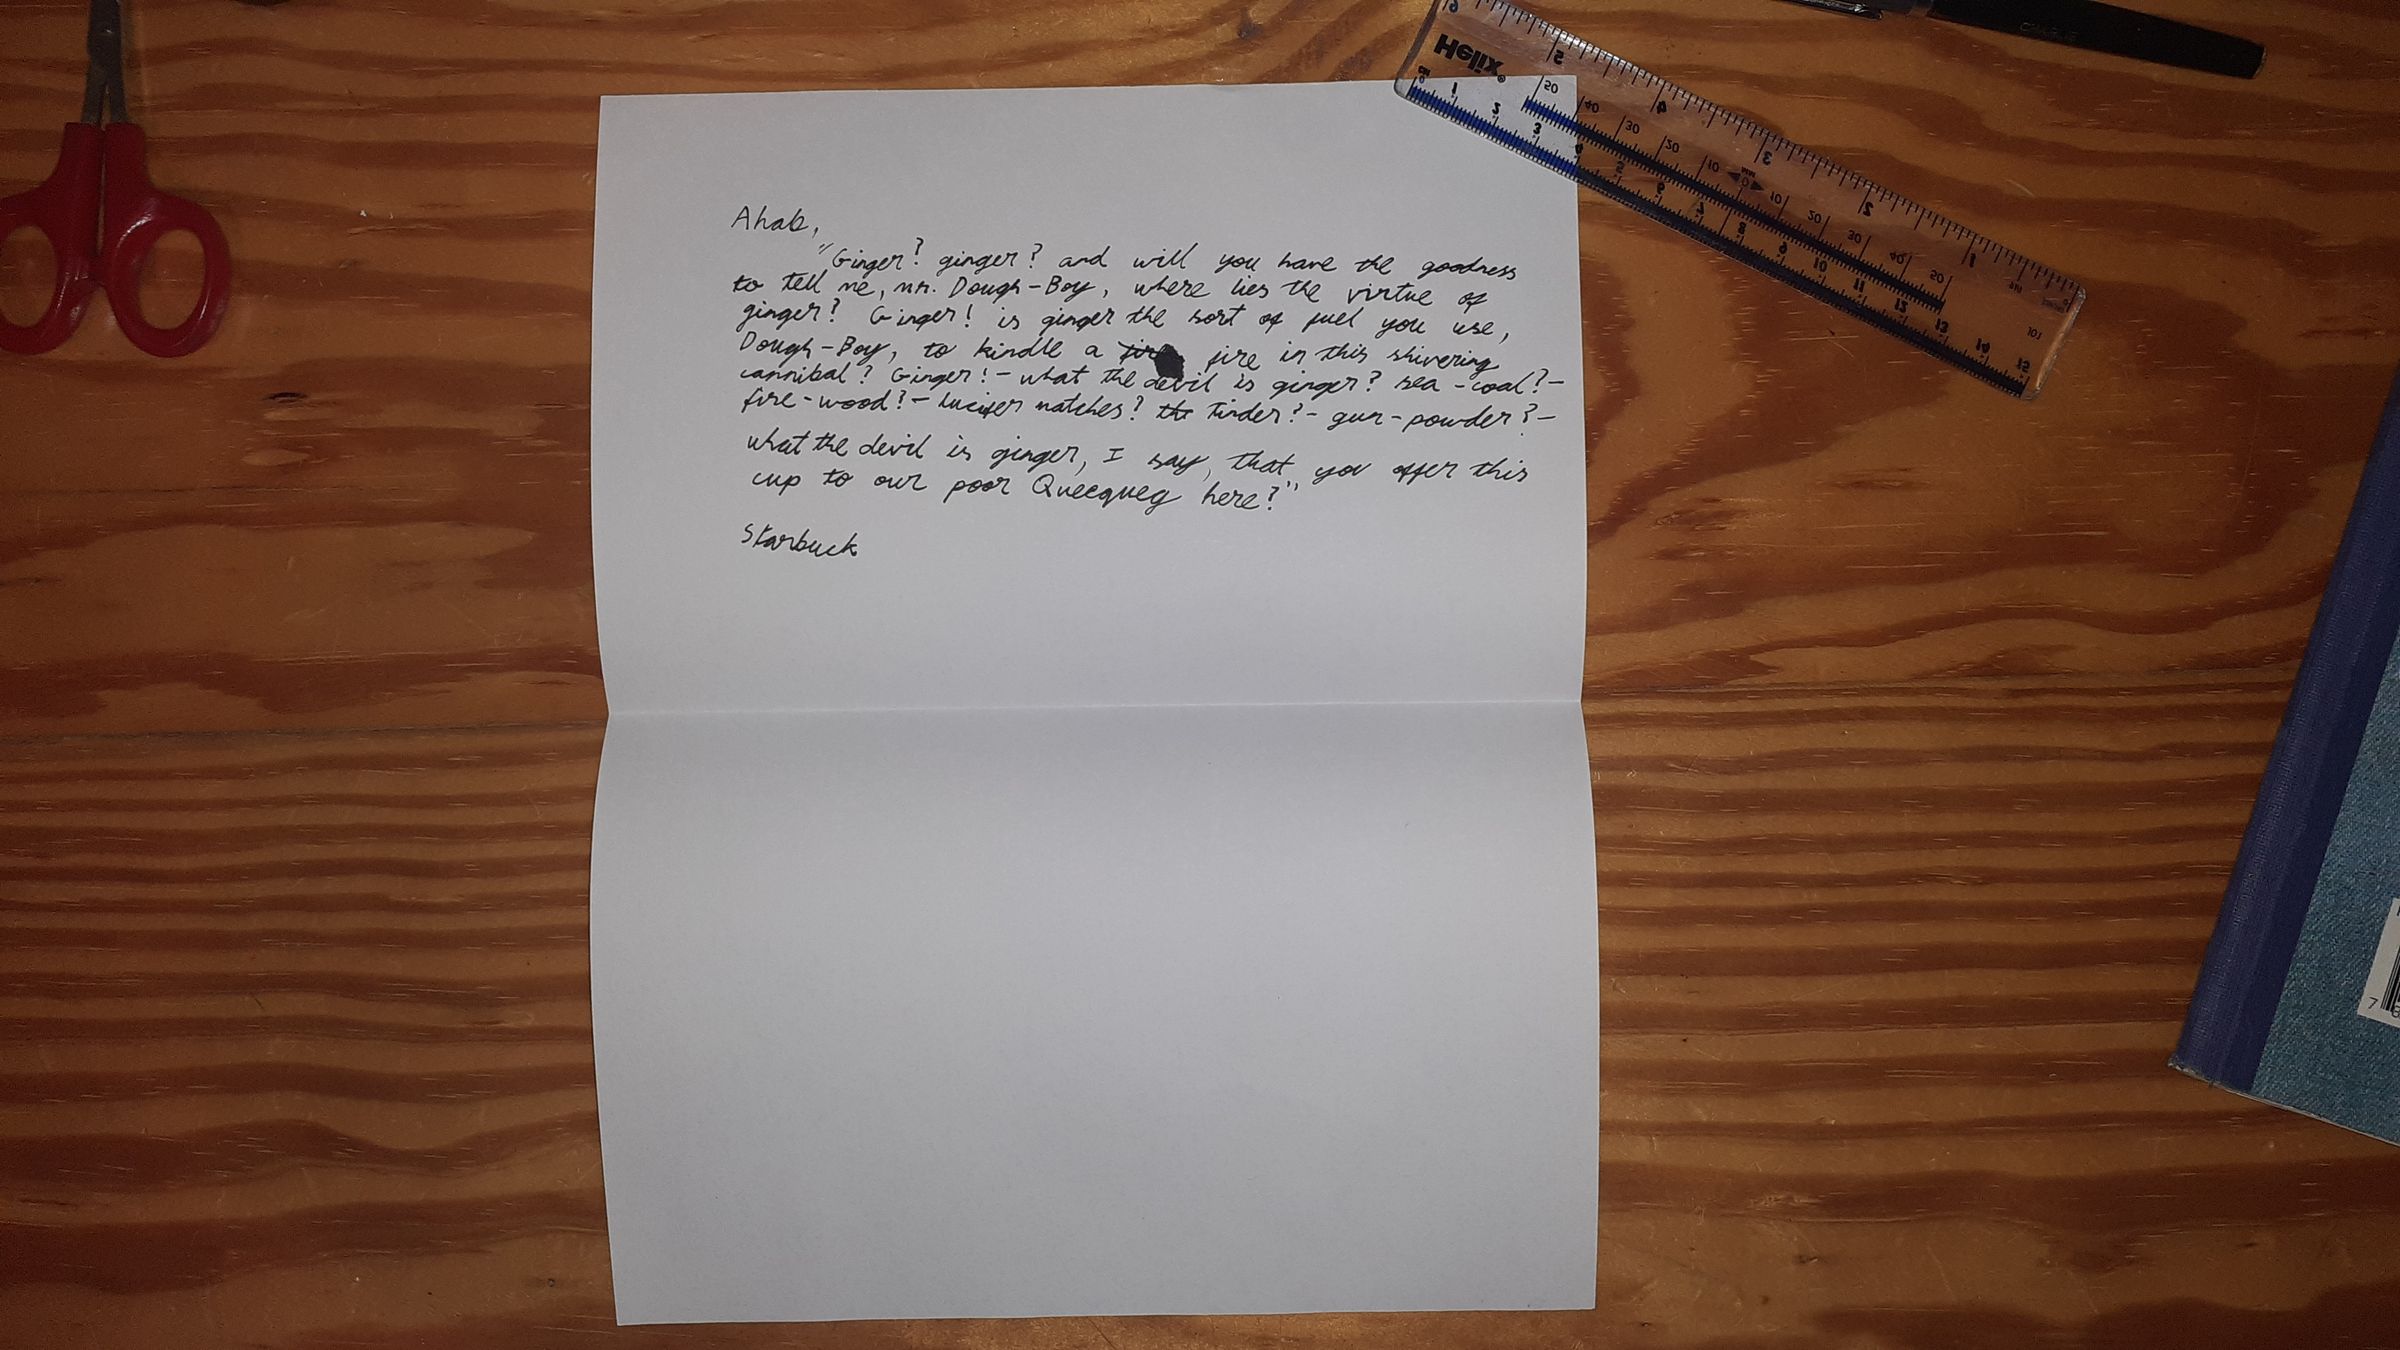 Ahab,
"Ginger? ginger? and will you have the goodness
to tell me, mr. Dough-Boy, where lies the virtue of
ginger? Ginger! is ginger the sort of fuel you use,
Dough-Boy, to kindle a fire in this shivering
cannibal? Ginger!- what the devil is ginger? sea-coal?-
fire-wood?- lucifer matches? Tinder?- gun-powder?-
what the devil is ginger, I say, that you offer this
cup to our poor Queequeg here?"
Starbuck
Helix®